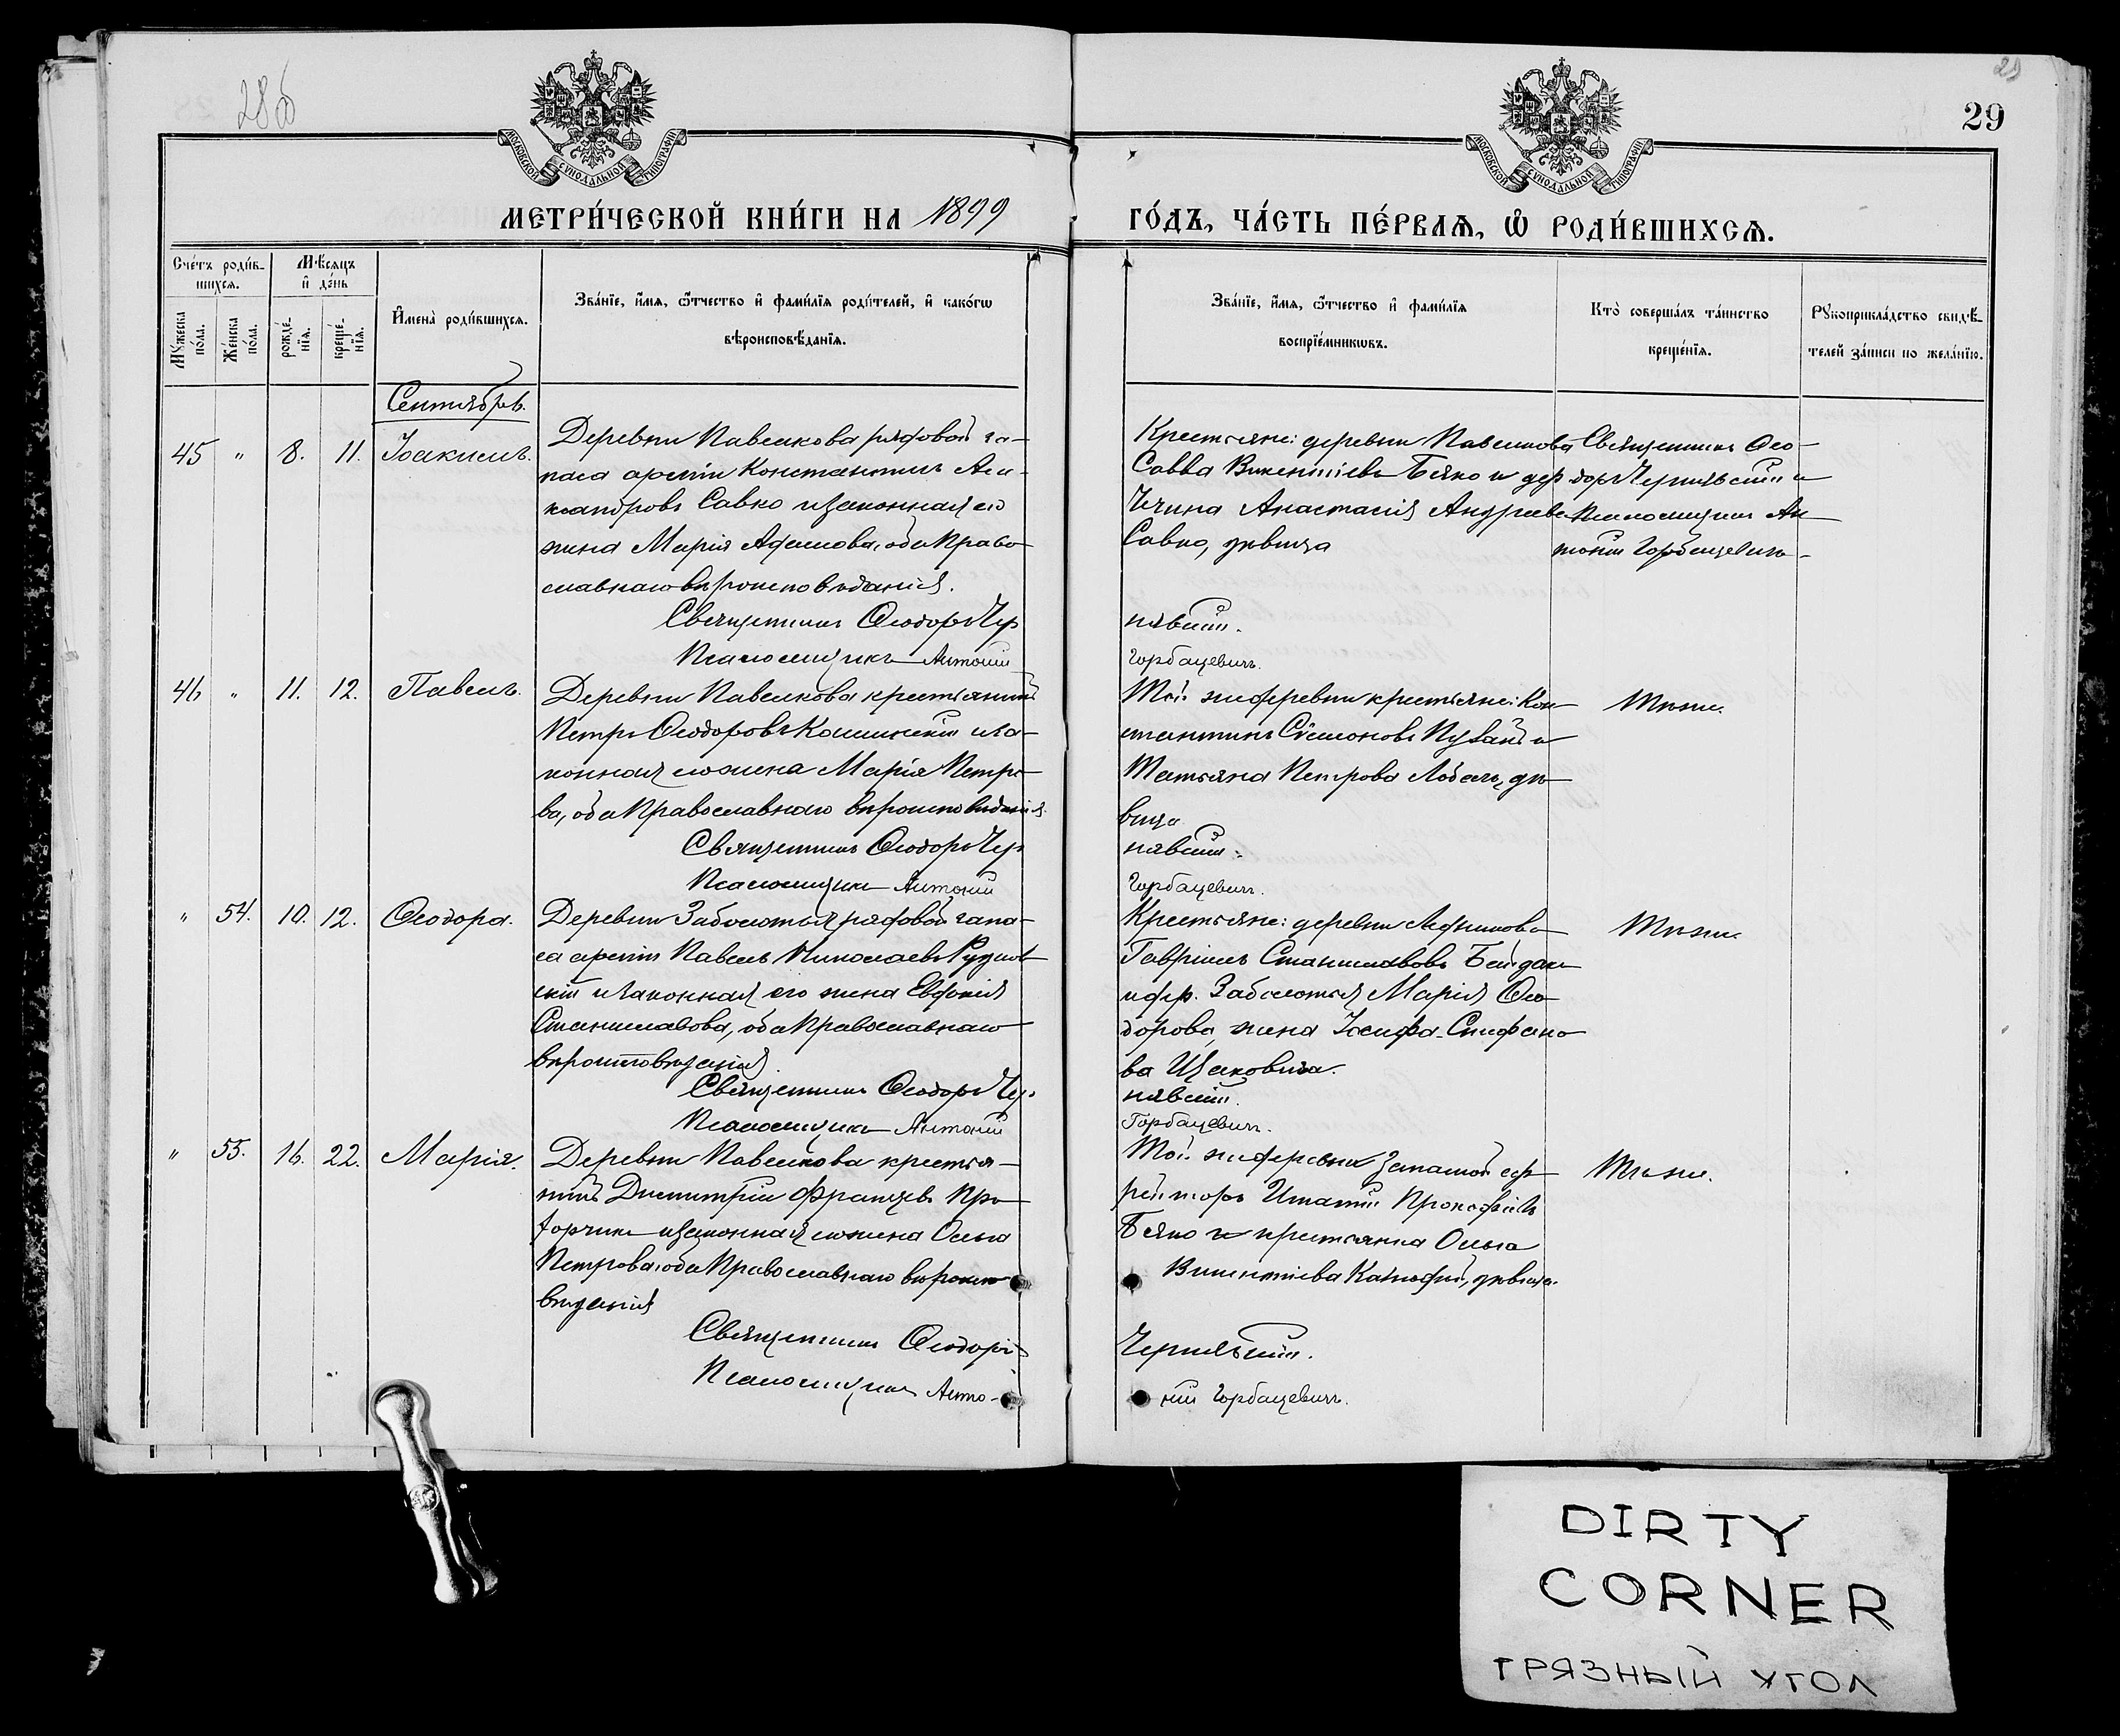 28об
29
29
МОСКОВСКОЙ СѴНОДАЛЬНОЙ ТИПОГРАФІИ
МОСКОВСКОЙ СѴНОДАЛЬНОЙ ТИПОГРАФІИ
МЕТРИ́ЧЕСКОЙ КНИ́ГИ НА 1899
ГО́ДЪ, ЧА́СТЬ ПЕ́РВАѦ, Ѡ҆ РОДИ́ВШИХСѦ.
Сче́тъ роди́в-
шихсѧ.
Мѣ́сяцъ
и҆ де́нь
Мꙋ́жеска
по́ла.
Же́нска
по́ла.
рожде́-
нїѧ.
креще́-
нїѧ.
И҆мена̀ роди́вшихсѧ.
Зва́нїе, и҆́мѧ, ѻ҆́тчество и҆ фами́лїѧ роди́телей, и҆ како́гѡ
вѣроисповѣ́данїѧ.
Зва́нїе, и҆́мѧ, ѻ҆́тчество и҆ фами́лїѧ
воспрїе́мникѡвъ.
Кто̀ соверша́лъ та́инство
креще́нїѧ.
Рꙋкоприкла́дство свидѣ́-
телей за́писи по жела́нїю.
Сентябрь.
45 " 8. 11. Іоакимъ.
Деревни Павелкова рядовой за-
паса арміи Константинъ Але-
ксандровъ Савко и законная его
жена Марія Адамова, оба Право-
славнаго вѣроисповѣданія.
Священникъ Ѳеодоръ Чер
Псаломщикъ Антоній
Крестьяне: деревни Павелкова
Савва Викентіевъ Бяко и дер
Анастасія Андреева
Савко, дѣвица
Священникъ Ѳео-
доръ Чернявскій и
Псаломщикъ Ан
тоній Горбацевичъ-
нявскій.
Горбацевичъ.
46 " 11. 12. Павелъ.
Деревни Павелкова крестьянинъ
Петръ Ѳеодоровъ и за-
конная его жена Марія Петро-
ва, оба Православнаго вѣроисповѣданія.
Священникъ Ѳеодоръ Чер
Псаломщикъ Антоній
Той же деревни крестьяне: Кон-
стантинъ Сѵмеоновъ и
Татьяна Петрова дѣ-
вица
нявскій.
Горбацевичъ.
Тѣ же.
" 54. 10. 12. Ѳеодора.
Деревни Заболотья рядовой запа-
са арміи Павелъ Николаевъ
скій и законная его жена Евфимія
Станиславова, оба Православнаго
вѣроисповѣданія.
Священникъ Ѳеодоръ Чер
Псаломщикъ Антоній
Крестьяне: деревни
Гавріилъ Станиславовъ
и дер. Заболотья Марія Ѳео-
дорова, жена Іосифа Стефано
ва
нявскій.
Горбацевичъ.
Тѣ же.
" 55. 16. 22. Марія.
Деревни Павелкова крестья-
нинъ Димитрій Францевъ Про-
и законная его жена Ольга
Петрова, оба Православнаго вѣроиспо
вѣданія
Священникъ Ѳеодоръ
Псаломщикъ Анто-
Той же деревни запасной еф-
рейторъ Игнатій Прокофіевъ
Бяко и крестьянка Ольга
Викентіева дѣвица.
Чернявскій.
ній Горбацевичъ.
Тѣ же.
DIRTY
CORNER
ГРЯЗНЫЙ УГОЛ